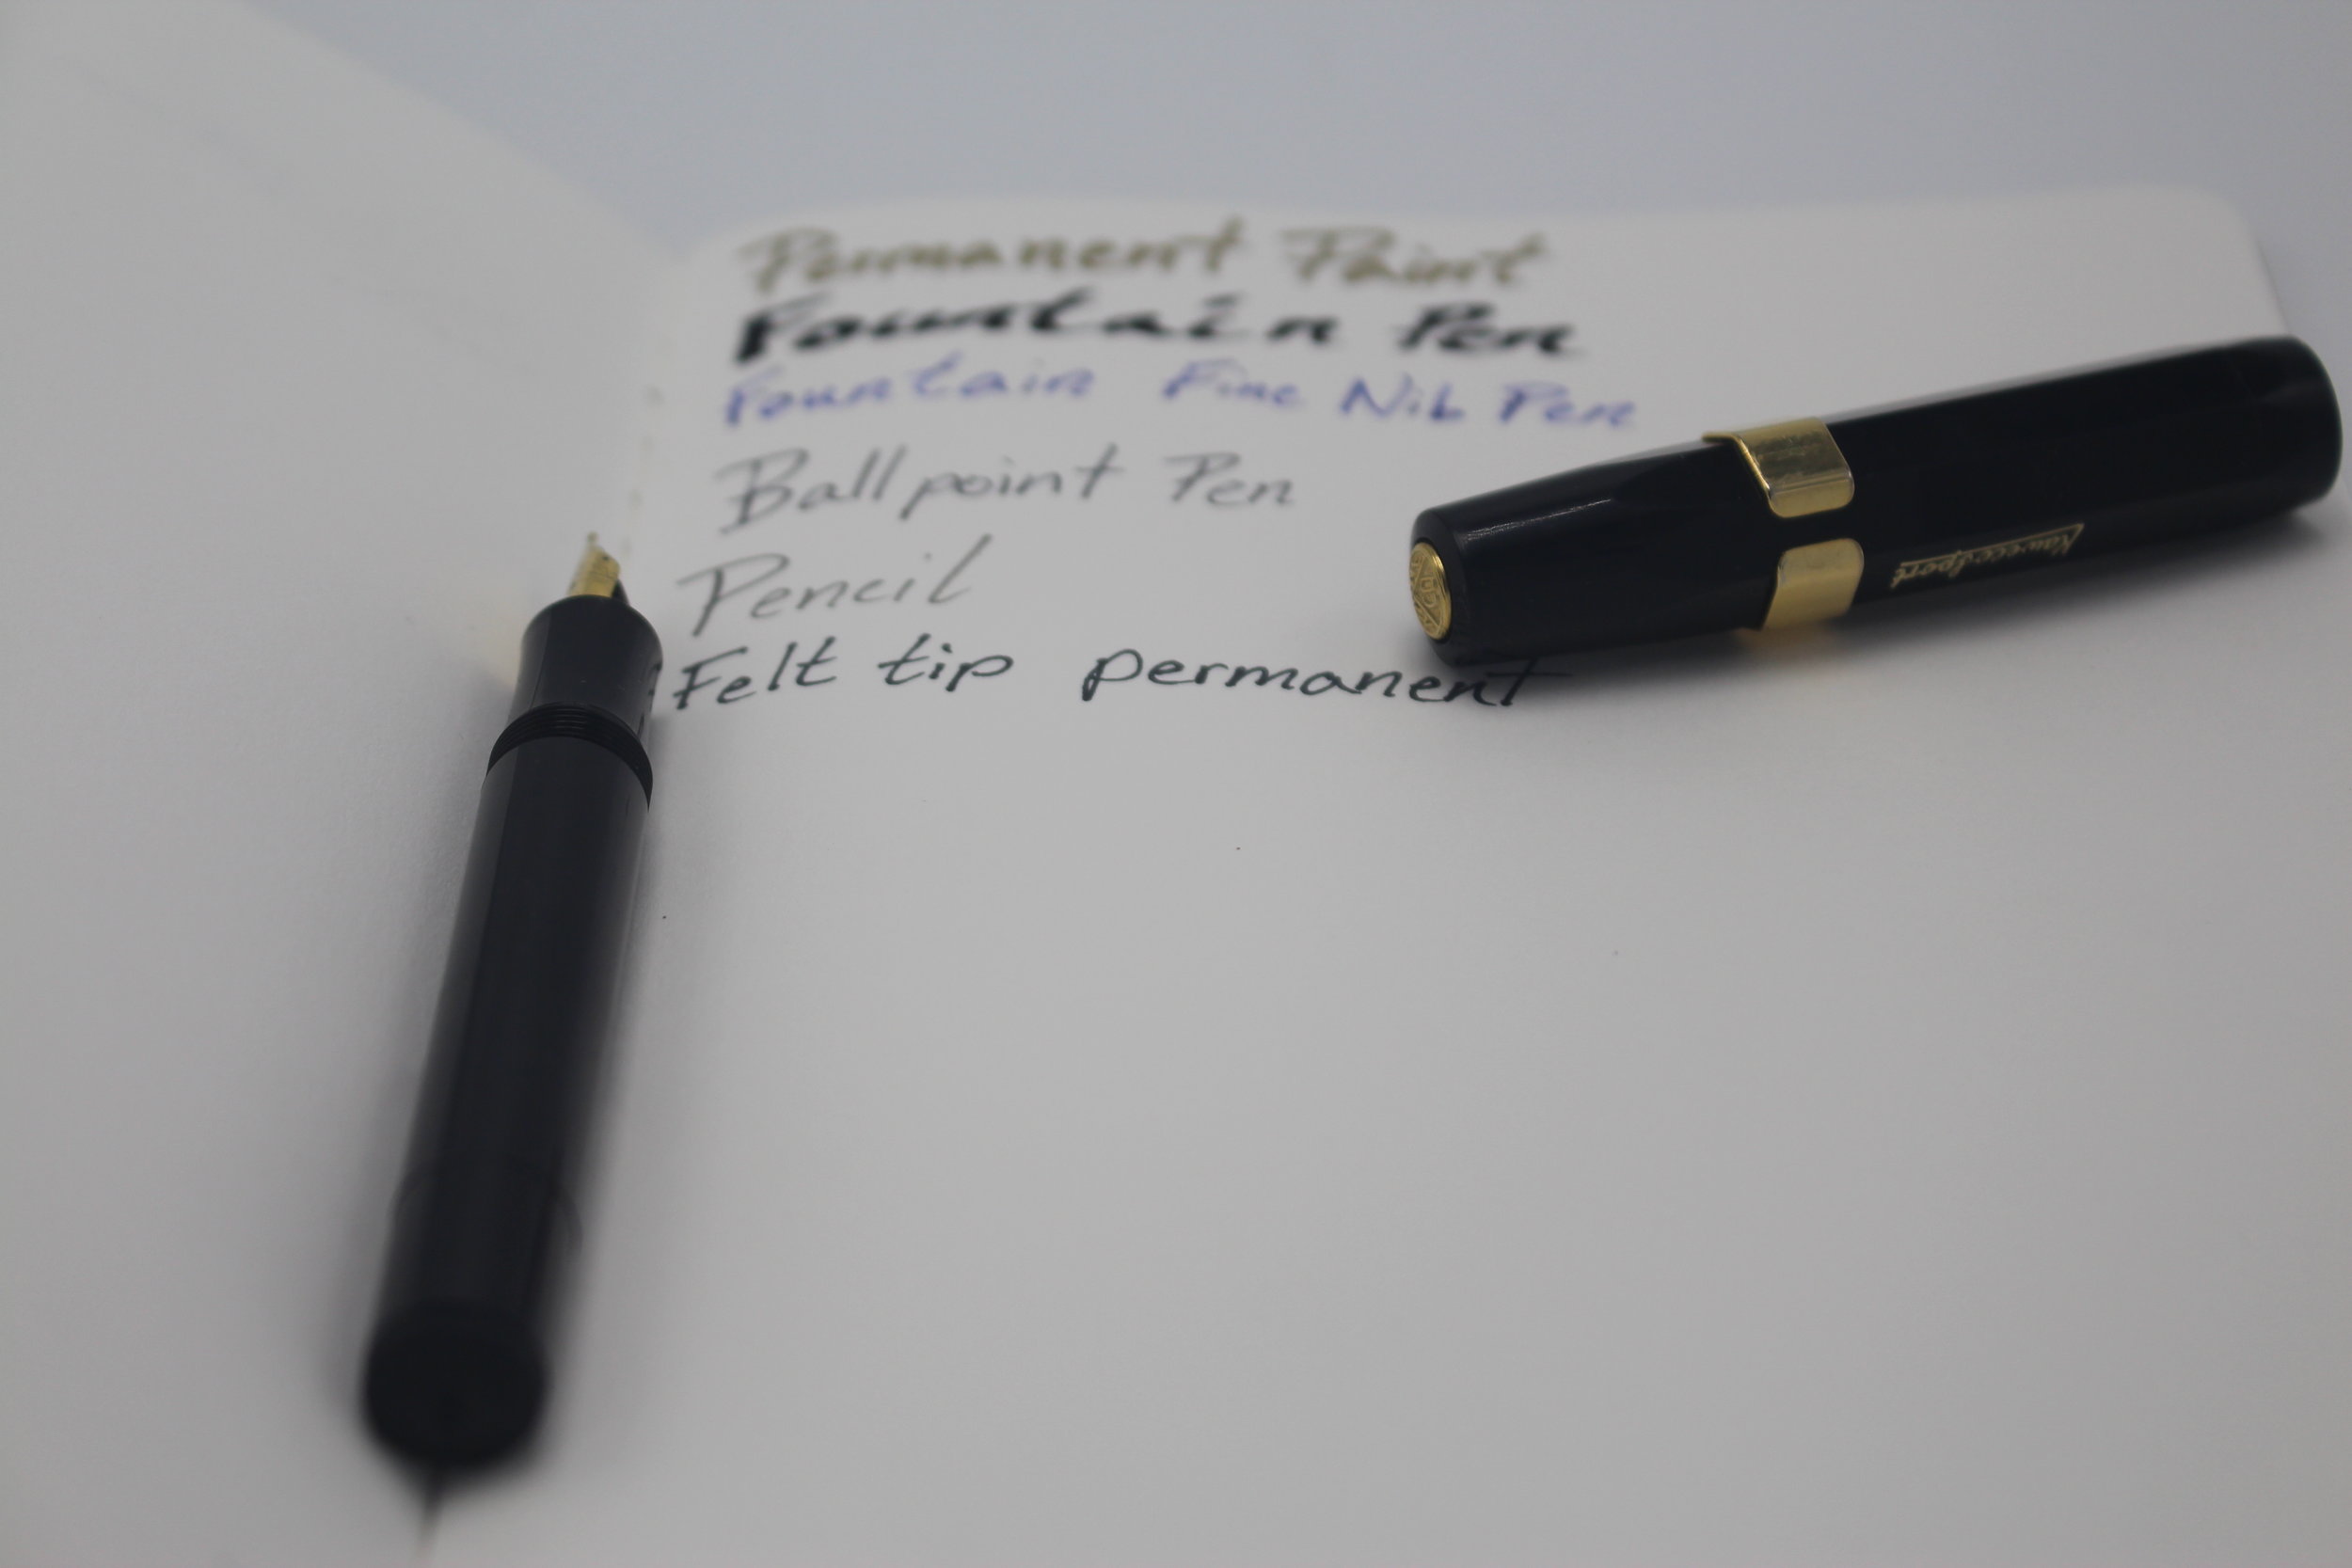 Permanent Paint
Fountain Pen
Fountain Fine Nib Pen
Ballpoint Pen
Pencil
Felt tip permanent
Kaweco Sport